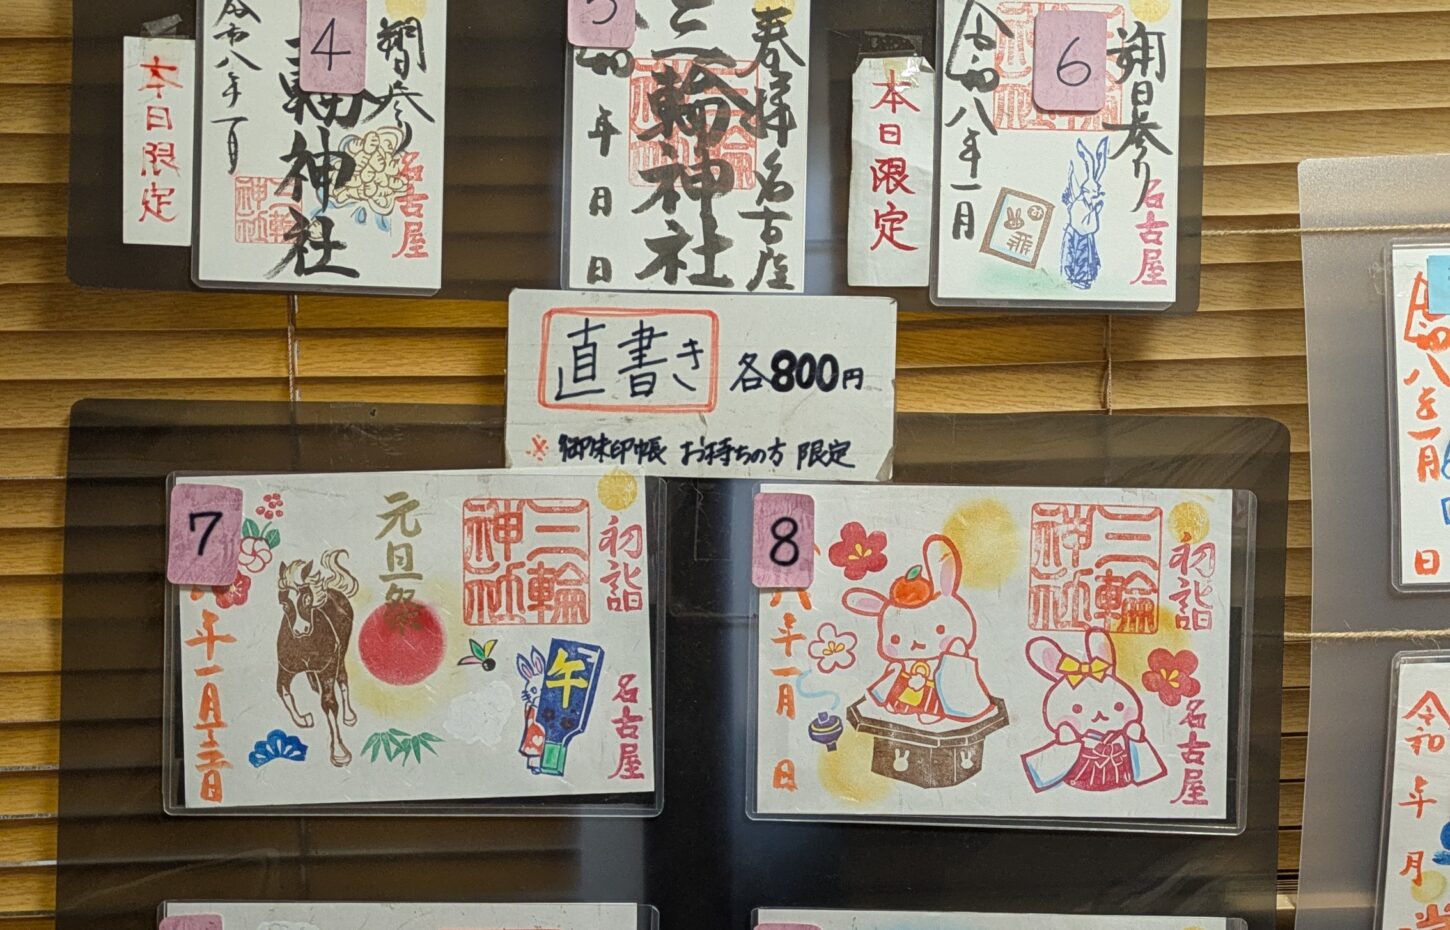 本日限定
4
朔日参り
三輪神社
令和八年一月
名古屋
5
奉拝 名古屋
三輪神社
年 月 日
本日限定
6
朔日参り
令和八年一月
名古屋
直書き 各800円
※御朱印帳 お持ちの方 限定
7
初詣
三輪神社
元旦祭
午
名古屋
年一月
日
8
初詣
三輪神社
名古屋
八年一月 日
日
令和 年 月